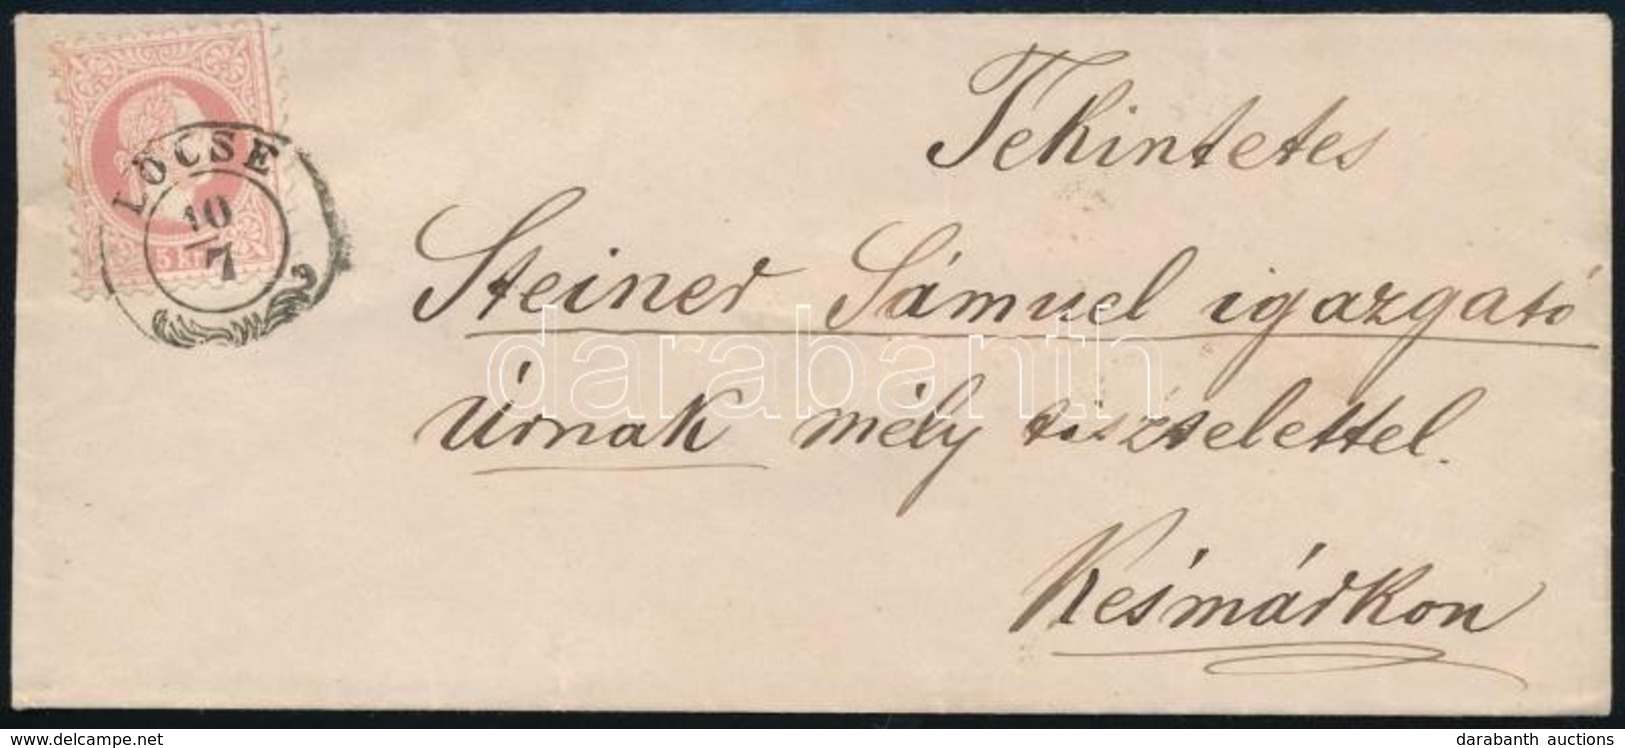 LŐCSE
10
7
5 kr
Tekintetes
Steiner Sámuel igazgató
Úrnak mély tisztelettel.
Késmárkon
darabanth
www.delcampe.net
darabanth auctions